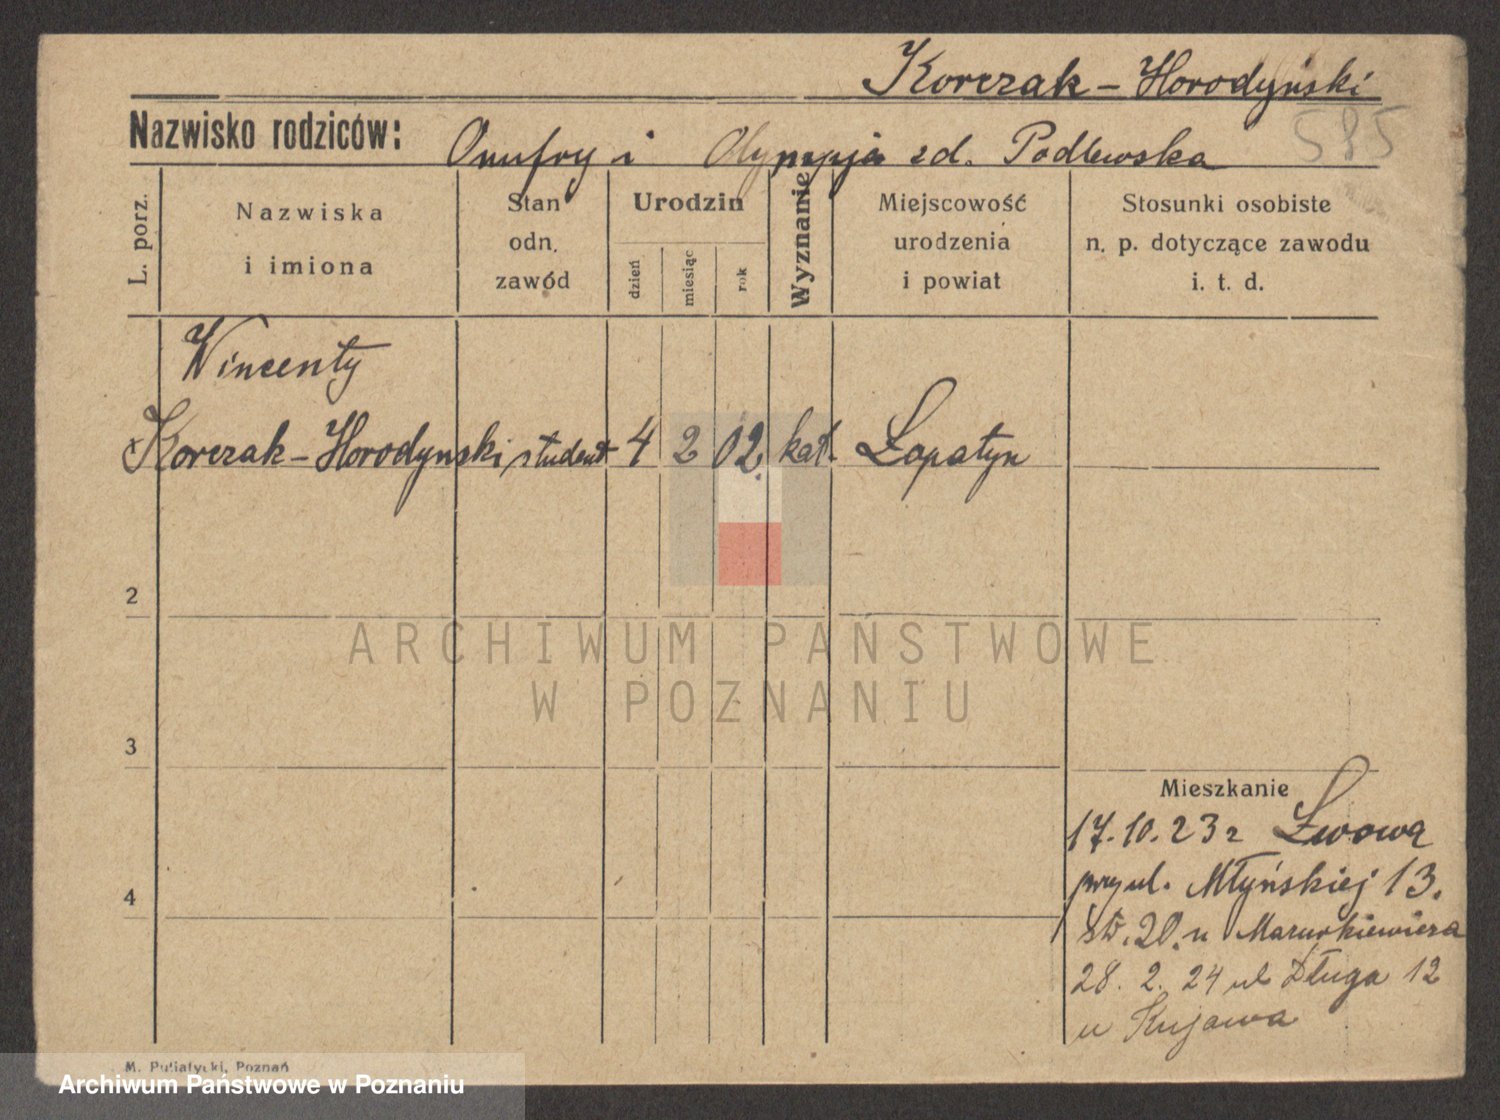 Korczak - Horodyński
Nazwisko rodziców: Onufry i Olympja zd. Podlewska
585
L. porz.
Nazwiska i imiona
Stan odn. zawód
Urodzin
dzień
miesiąc
rok
Wyznanie
Miejscowość urodzenia i powiat
Stosunki osobiste n. p. dotyczące zawodu i. t. d.
Wincenty
Korczak - Horodynski student 4 2 02. kat. Łopatyn
2
ARCHIWUM PAŃSTWOWE
W POZNANIU
3
Mieszkanie
17.10.23 r Lwowa
przy ul. Młyńskiej 13.
20. u Mazurkiewicza
4
28. 2. 24 ul Długa 12
u Kujawa
M. Putiatycki, Poznań
Archiwum Państwowe w Poznaniu